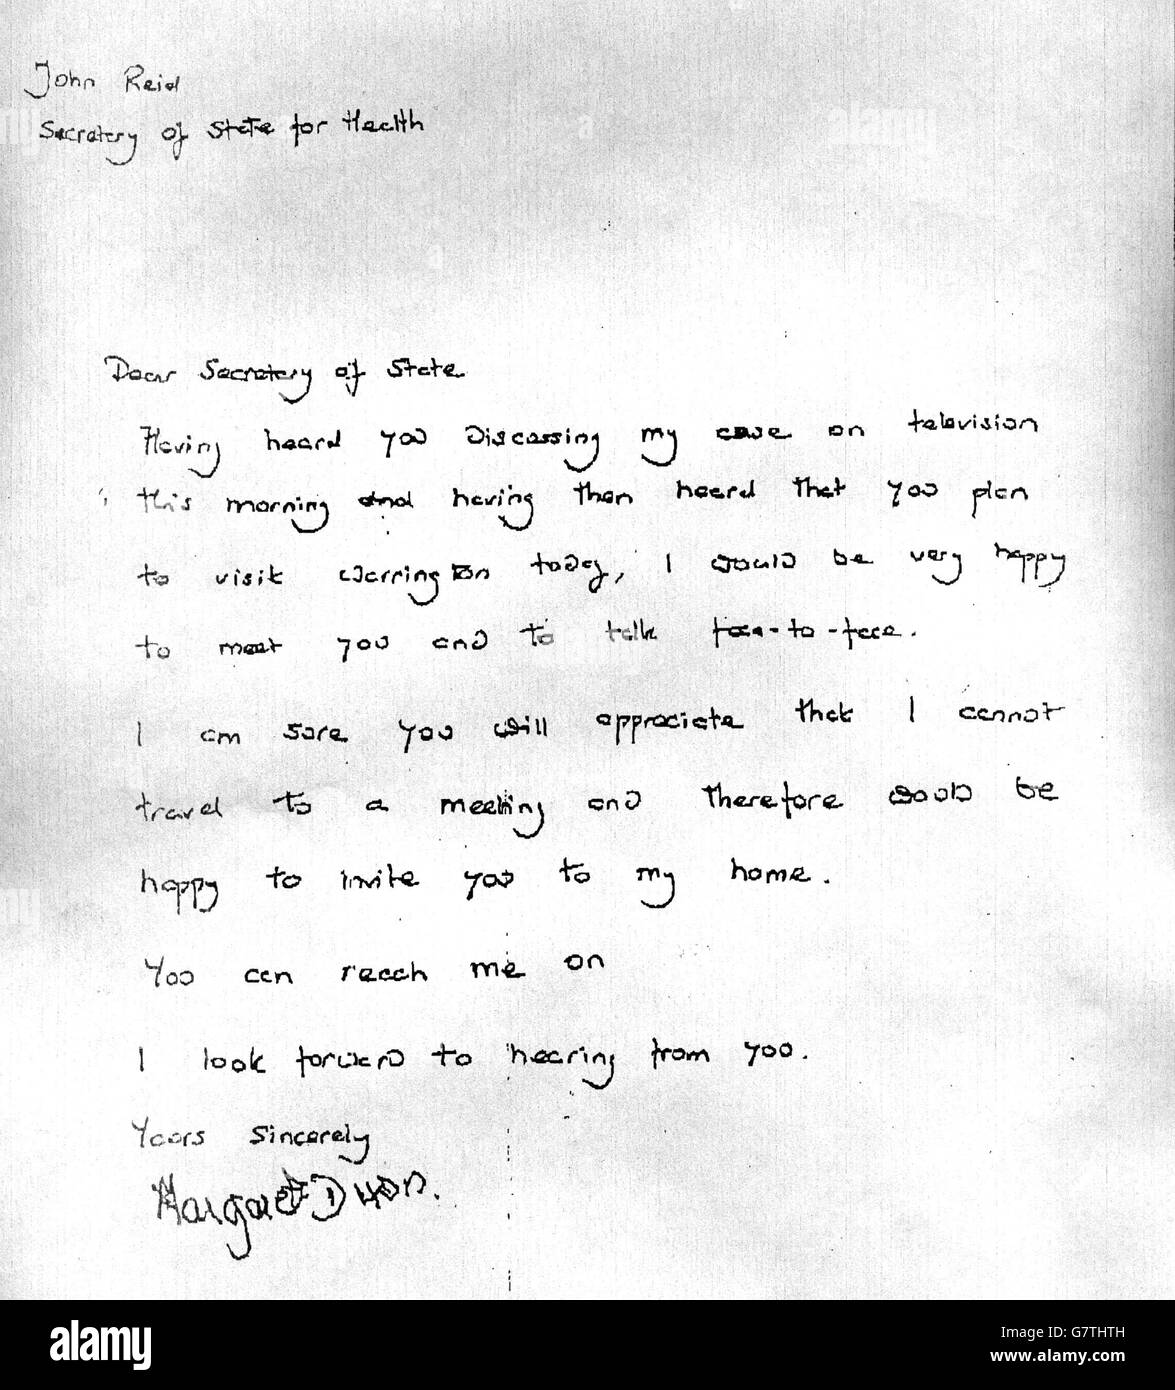 John Reid
Secretary of State for Health
Dear Secretary of State
Having heard you discussing my case on television
this morning and having then heard that you plan
to visit Warrington today, I would be very happy
to meet you and to talk face-to-face.
I am sure you will appreciate that I cannot
travel to a meeting and therefore would be
happy to invite you to my home.
You can reach me on
I look forward to hearing from you.
Yours sincerely
Margaret Dixon.
alamy
Image ID: G7THTH
www.alamy.com